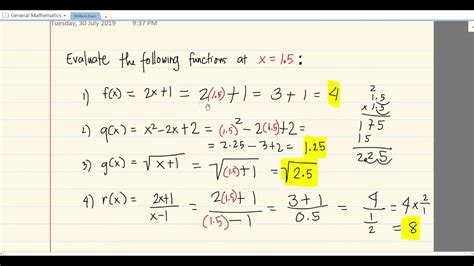 General Mathematics
Tuesday, 30 July 2019 9:37 PM
Evaluate the following functions at x = 1.5 :
1) f(x) = 2x+1 = 2(1.5)+1 = 3+1 = 4
2) q(x) = x²-2x+2 = (1.5)² - 2(1.5)+2 =
= 2.25 - 3+2 = 1.25
3) g(x) = √x+1 = √(1.5)+1 = √2.5
4) r(x) = 2x+1 / x-1 = 2(1.5)+1 / (1.5)-1 = 3+1 / 0.5 = 4 / 1/2 = 4 x 2/1
= 8
1.5
x 1.5
175
15
2.25